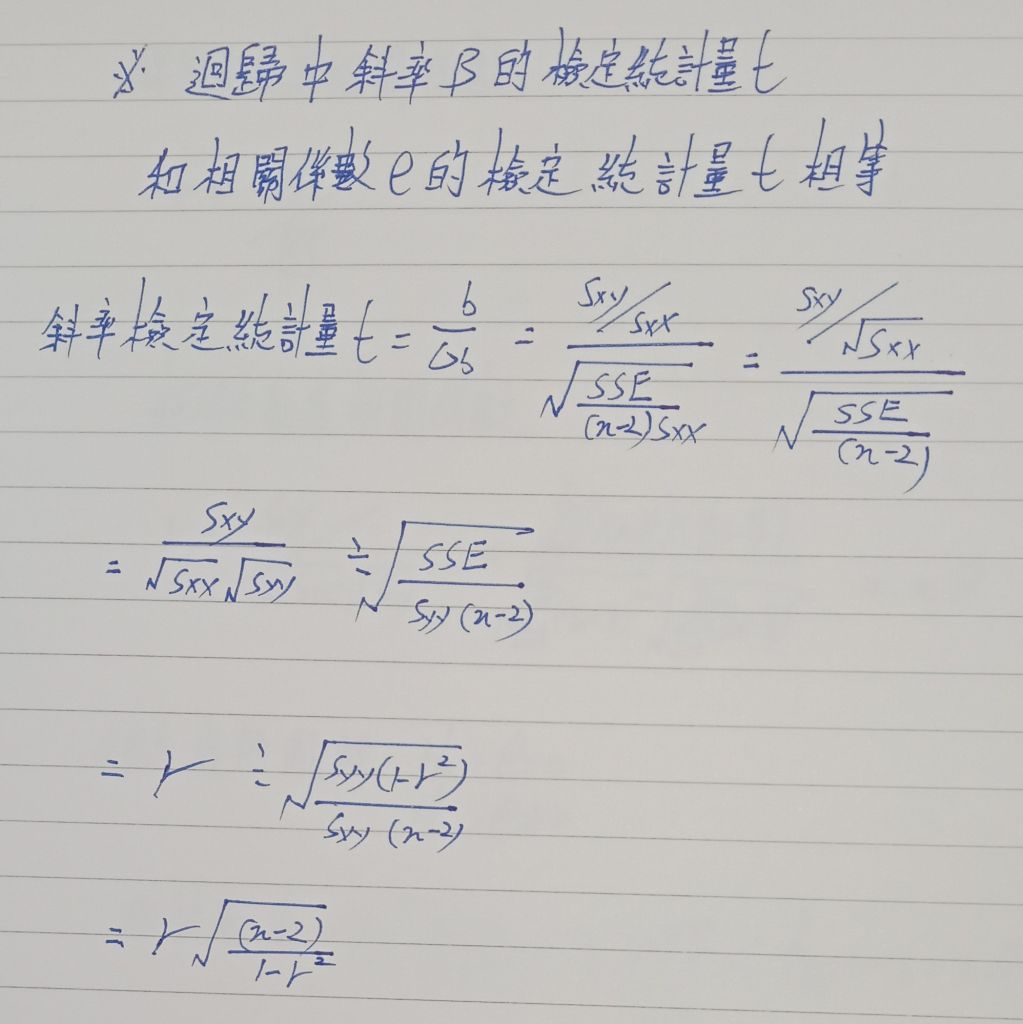 ※ 迴歸中斜率β的檢定統計量t
和相關係數ρ的檢定統計量t相等
斜率檢定統計量 t = b/σb = (Sxy/Sxx)/√(SSE/((n-2)Sxx)) = (Sxy/√Sxx)/√(SSE/(n-2))
= Sxy/(√Sxx √Syy) ÷ √(SSE/(Syy(n-2)))
= r ÷ √(Syy(1-r²)/(Syy(n-2)))
= r√((n-2)/(1-r²))